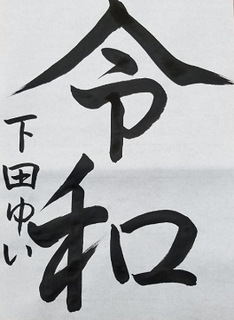 令和
下田ゆい